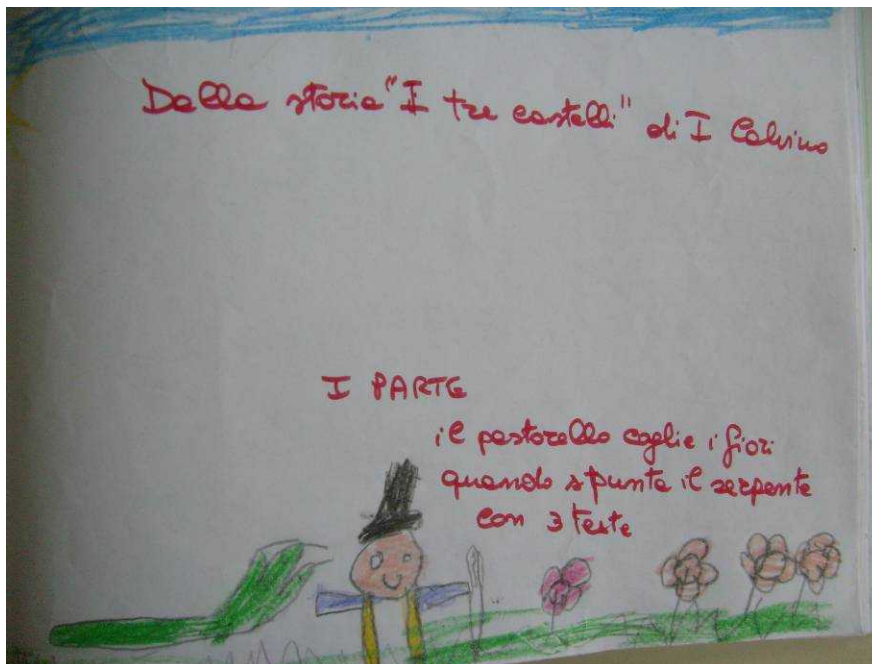 Dalla storia "I tre castelli" di I Calvino
I PARTE
il pastorello coglie i fiori
quando spunta il serpente
con 3 teste